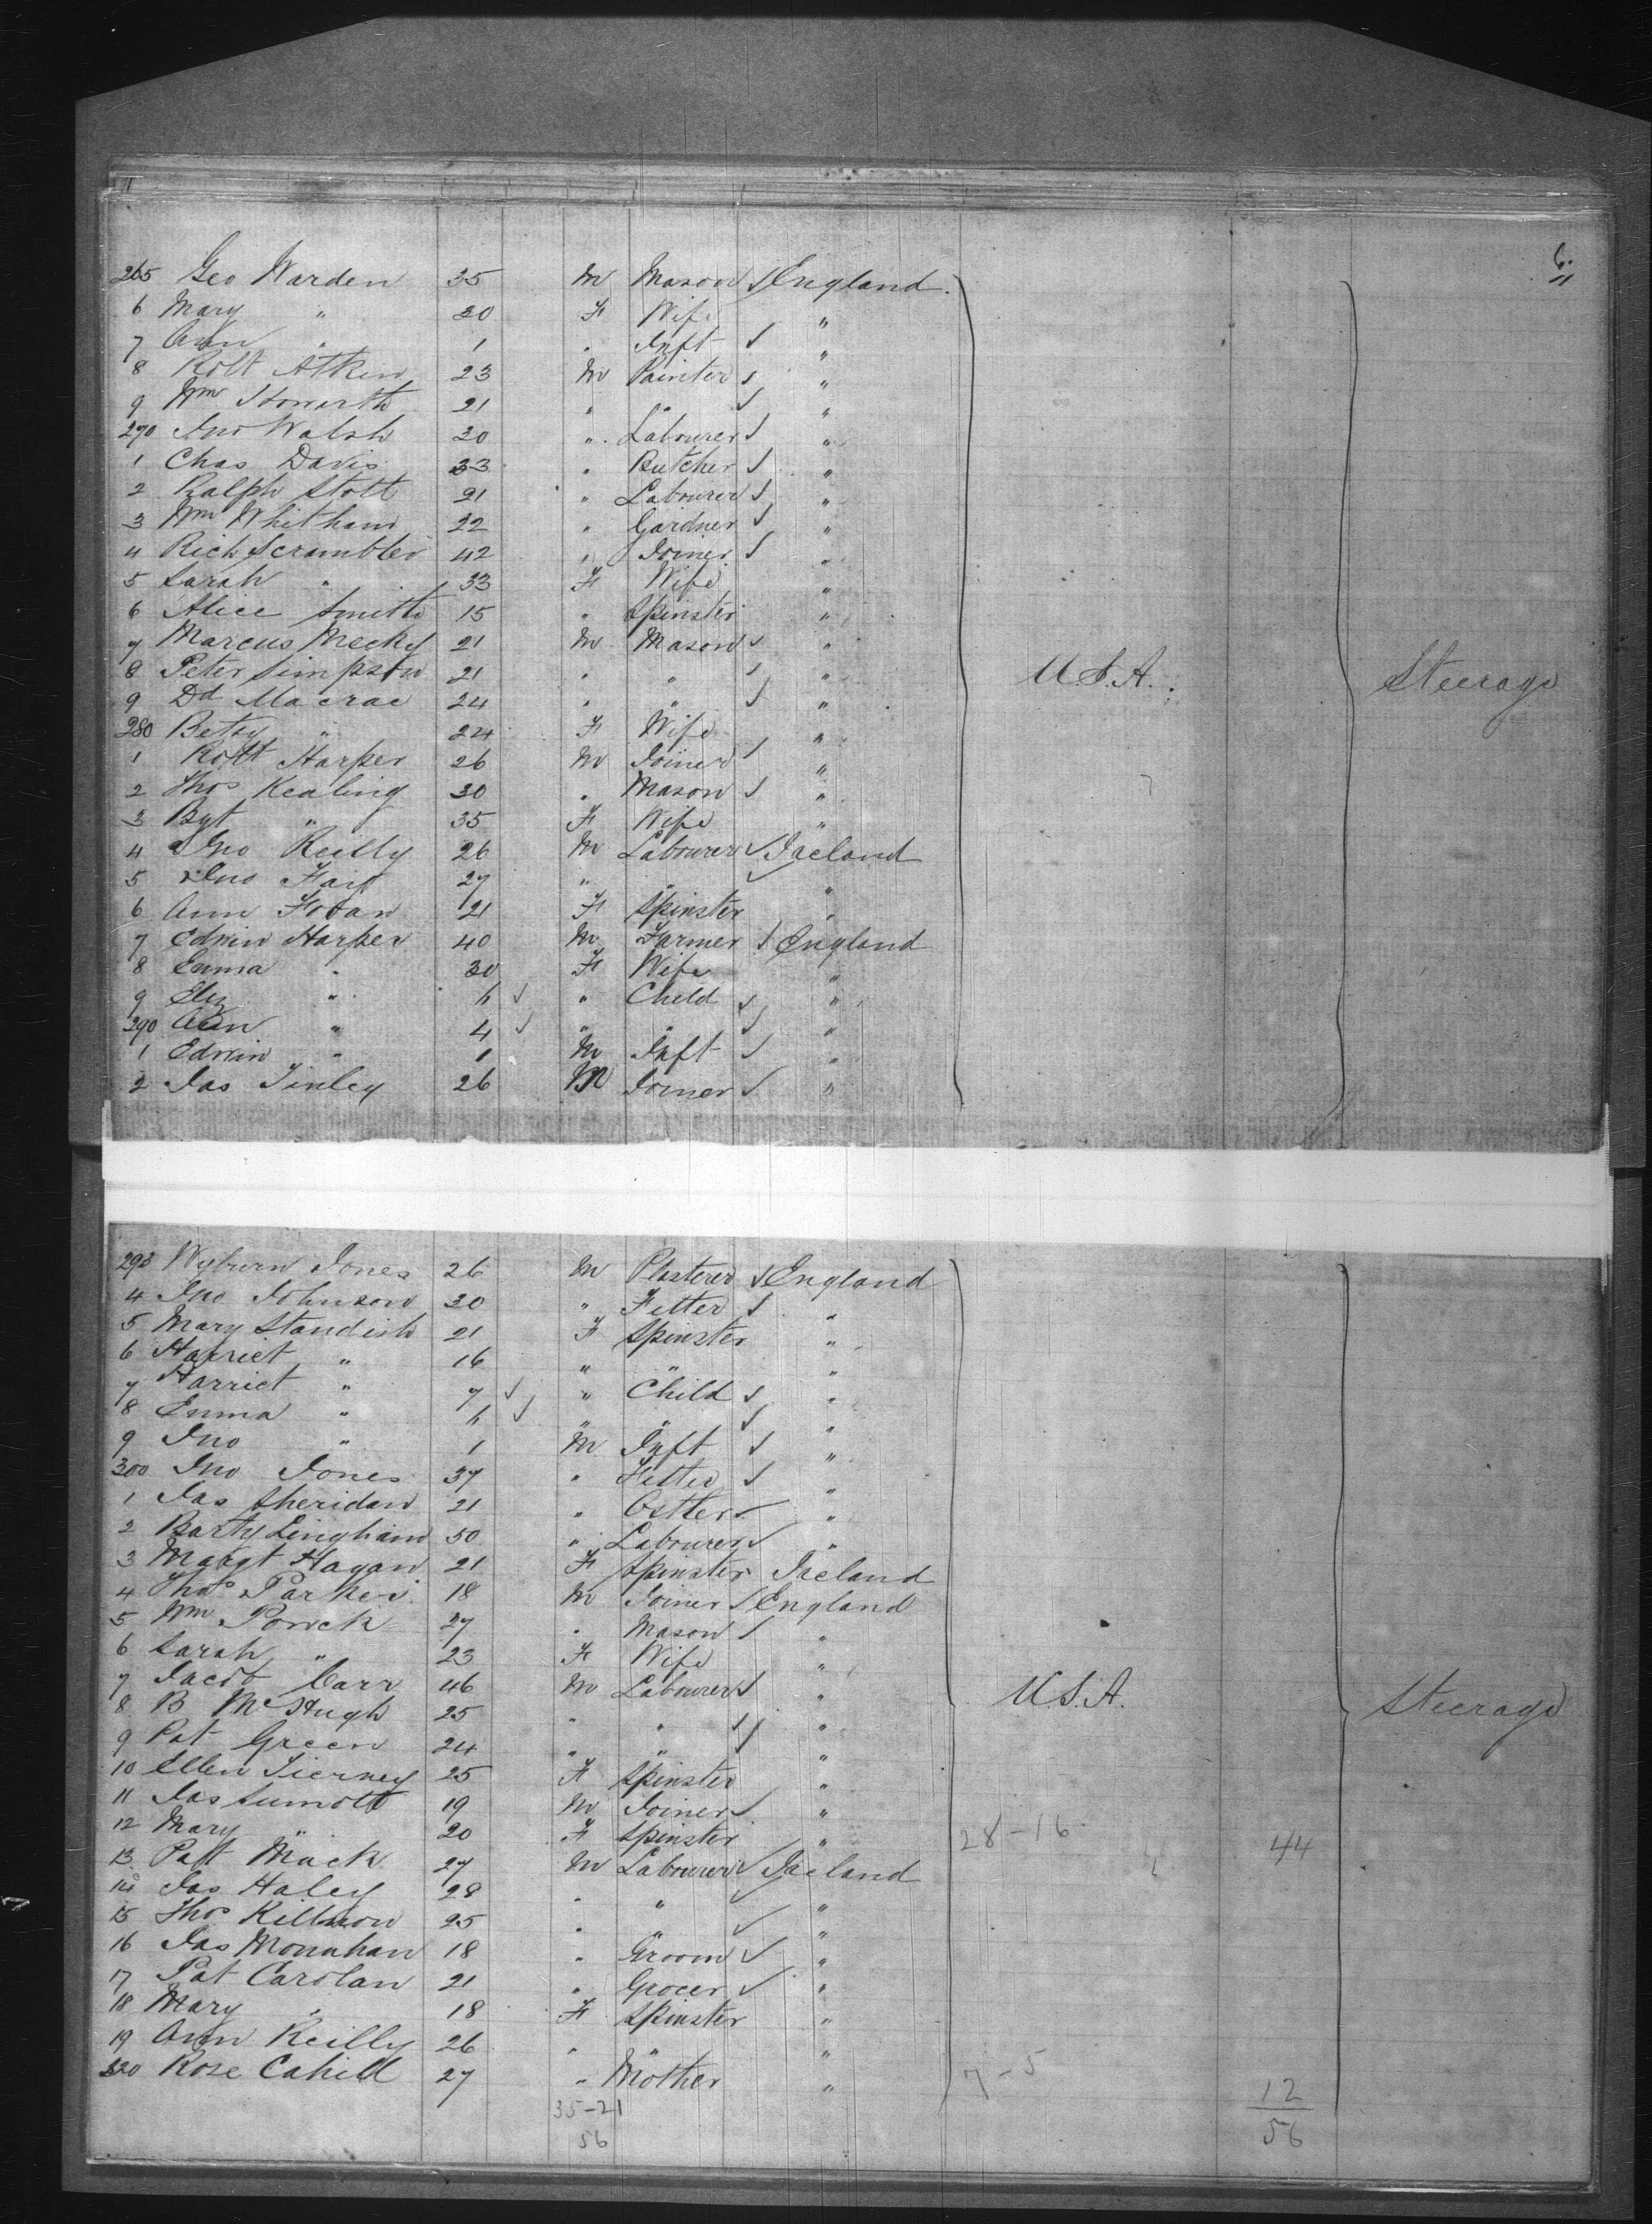 6.
265 Geo Warden 35 M Mason England
6 Mary " 30 F Wife "
7 Ann " 1 " Inft "
8 Robt Atken 23 M Painter "
9 Wm Howarth 21 " " "
270 Jno Walsh 30 " Labourer "
1 Chas Davis 33 " Butcher "
2 Ralph Stott 21 " Labourer "
3 Wm Whitham 22 " Gardner "
4 Rich Scrambler 42 " Joiner "
5 Sarah " 33 F Wife "
6 Alice Smith 15 " Spinster "
7 Marcus Mecky 21 M Mason "
8 Peter Simpson 21 " " " U.S.A. Steerage
9 Dd Macrae 24 " " "
280 Betsy " 24 F Wife "
1 Robt Harper 26 M Joiner "
2 Thos Kealing 30 " Mason "
3 Bgt " 35 F Wife "
4 Jno Reilly 26 M Labourer Ireland
5 Jno 27 " " "
6 Ann 21 F Spinster "
7 Edwin Harper 40 M Farmer England
8 Emma " 30 F Wife "
9 Eliz " 6 " Child "
290 Ann " 4 " " "
1 Edwin " 1 M Inft "
2 Jas Tinley 26 M Joiner "
293 Wyburn Jones 26 M Plasterer England
4 Jno Johnson 30 " Fitter "
5 Mary Standish 21 F Spinster "
6 Harriet " 16 " " "
7 Harriet " 7 " Child "
8 Emma " 6 " " "
9 Jno " 1 M Inft "
300 Jno Jones 37 " Fitter "
1 Jas Sheridan 21 " Ostler "
2 Barty Lingham 50 " Labourer "
3 Margt Hagan 21 F Spinster Ireland
4 Thos Parker 18 M Joiner England
5 Wm Powck 27 " Mason "
6 Sarah " 23 F Wife "
7 Jacob Carr 46 M Labourer " U.S.A. Steerage
8 B McHugh 25 " " "
9 Pat Green 24 " " "
10 Ellen Tierney 25 F Spinster "
11 Jas Sumott 19 M Joiner "
12 Mary " 20 F Spinster " 28-16 44
13 Patt Mack 27 M Labourer Ireland
14 Jas Haley 28 " " "
15 Thos Killmon 25 " " "
16 Jas Monahan 18 " Groom "
17 Pat Carolan 21 " Grocer "
18 Mary " 18 F Spinster "
19 Ann Reilly 26 " " "
320 Rose Cahill 27 " Mother " 7-5
35-21 12
56 56